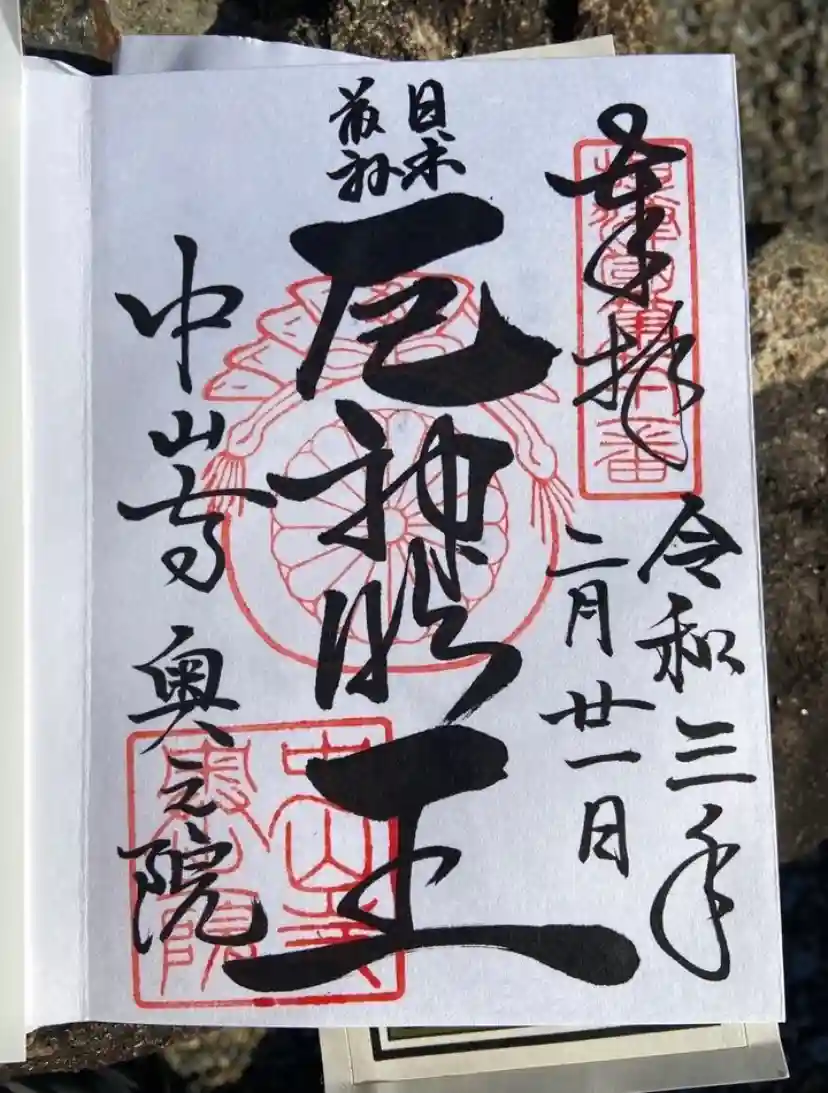 奉拝
令和三年
二月廿一日
日本
最初
厄神明王
中山寺 奥之院
中山寺
奥之院